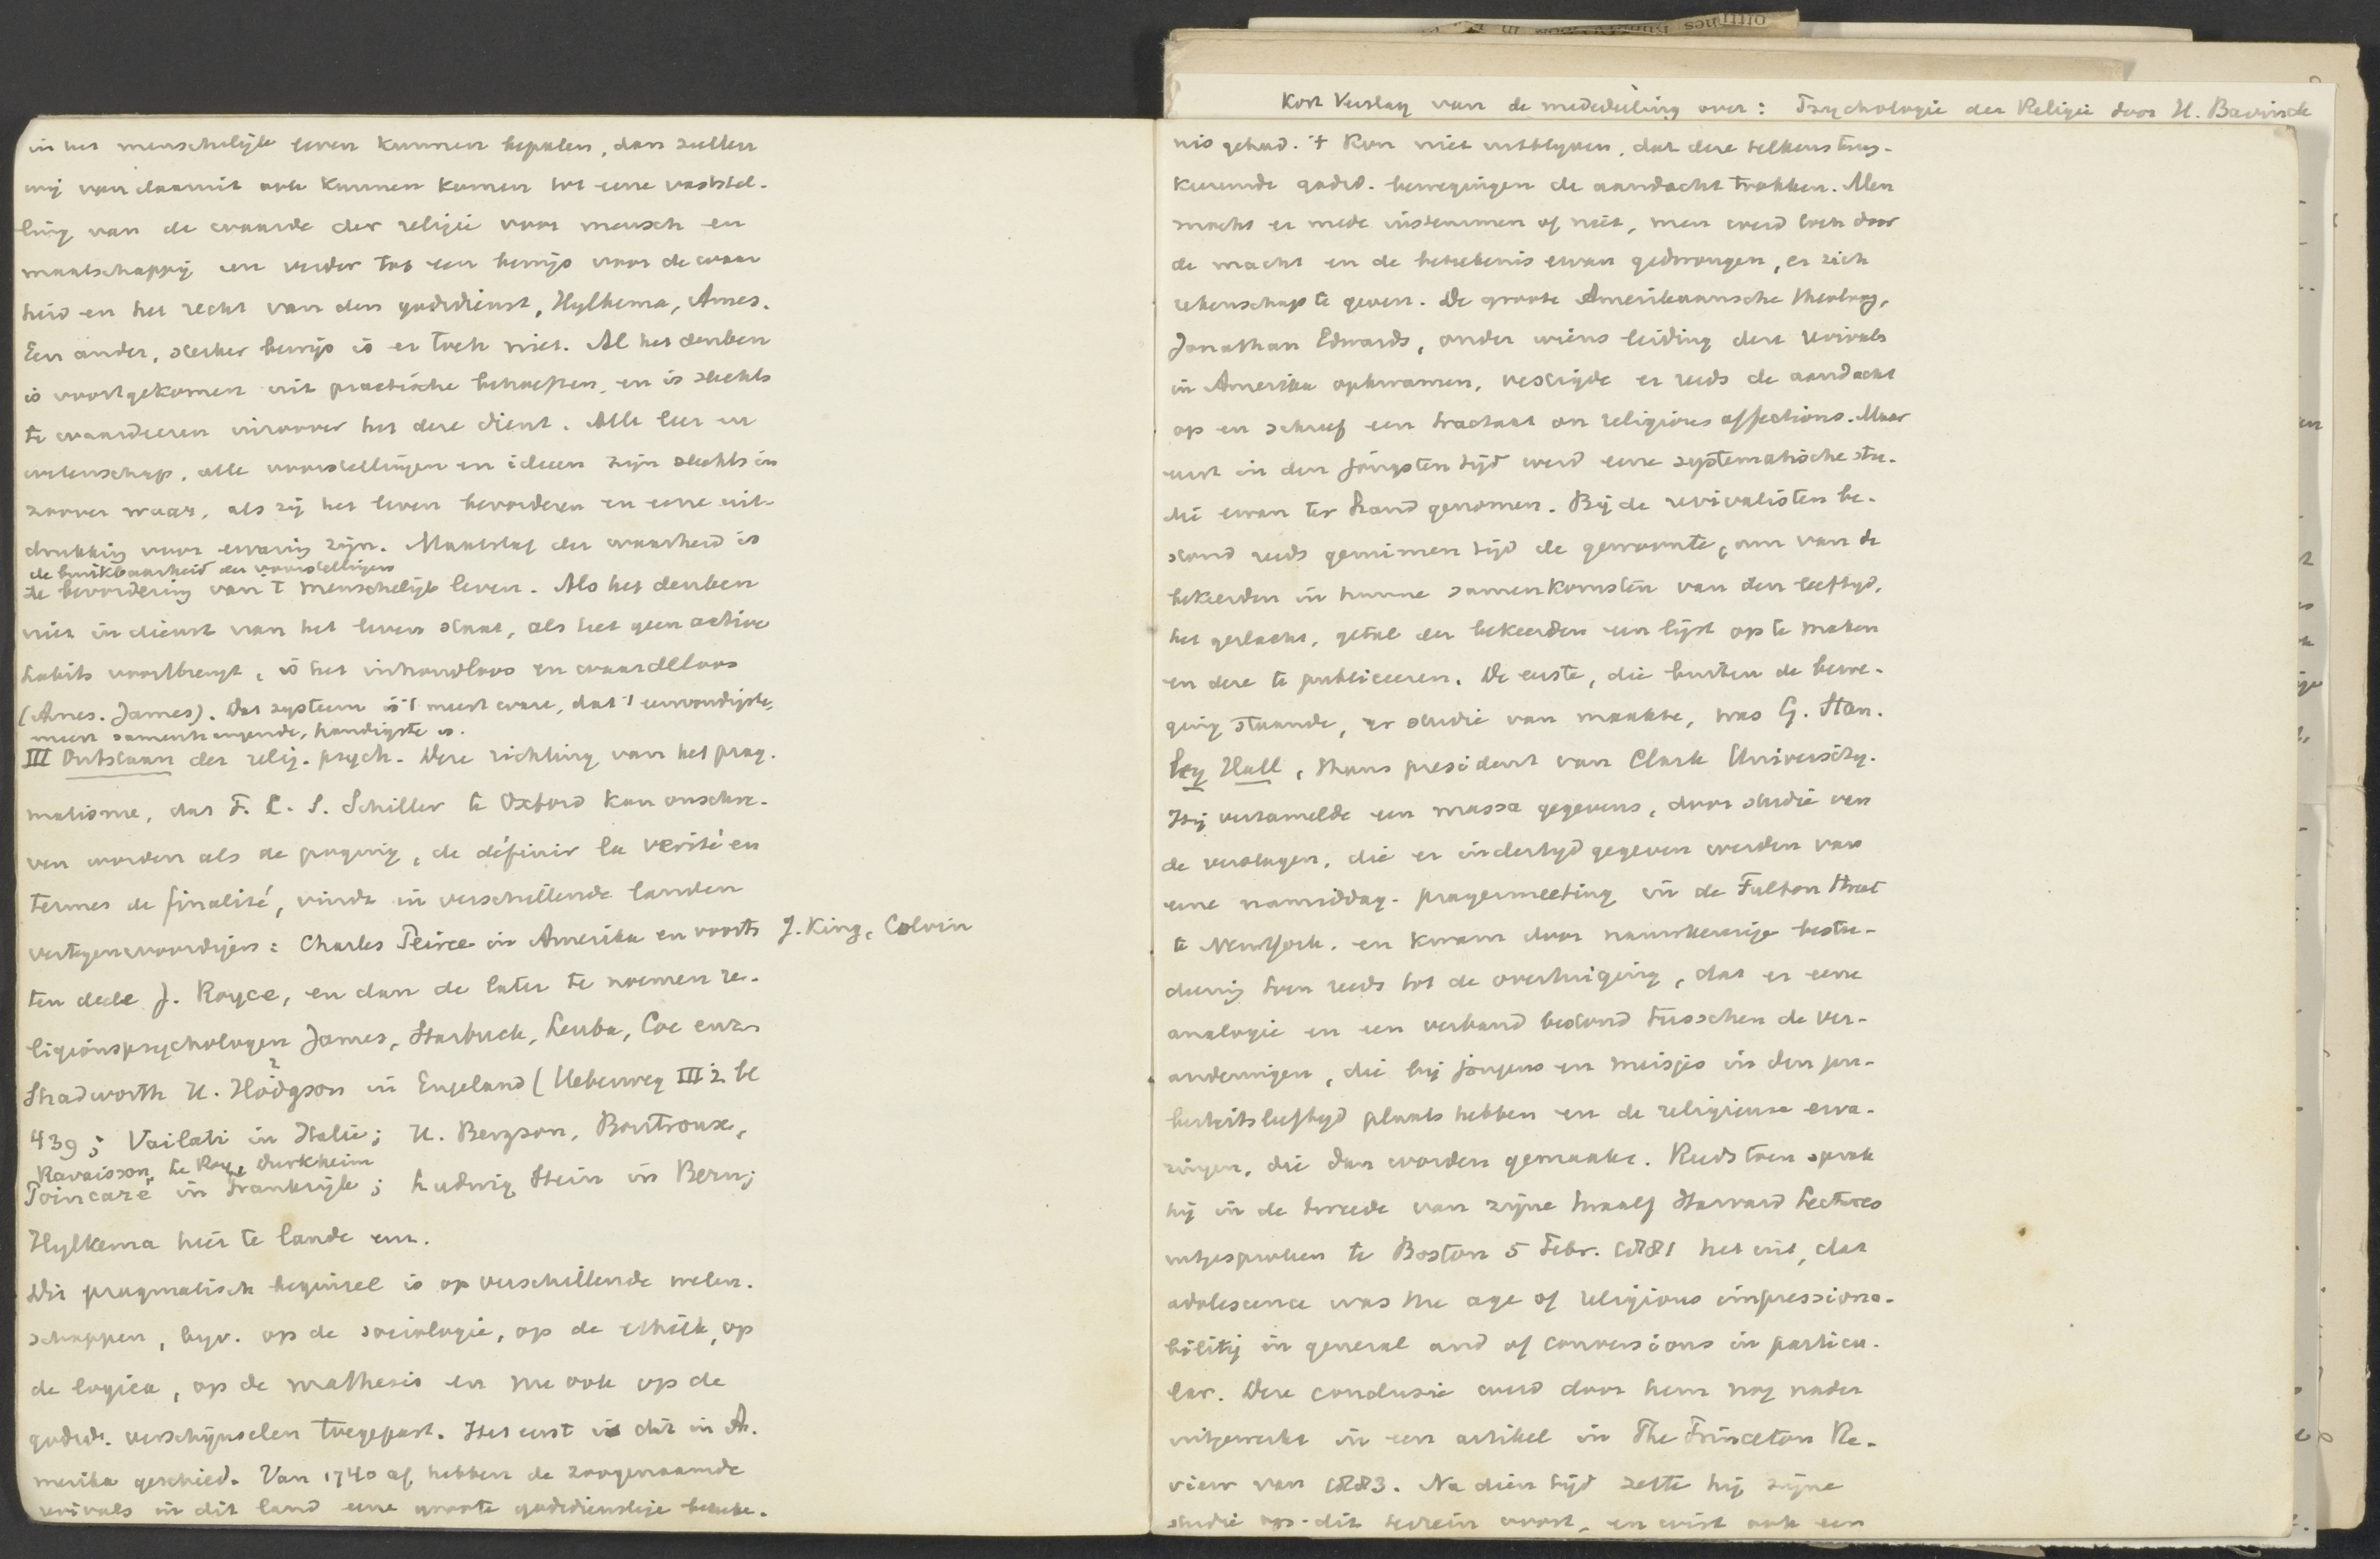 in het menschelijk leven kunnen bepalen, dan zullen
wij van daaruit ook kunnen komen tot eene vaststel-
ling van de waarde der religie voor mensch en
maatschappij en verder tot een bewijs voor de waar
heid en het recht van den godsdienst, Hylkema, Ames.
Een ander, sterker bewijs is er toch niet. Al het denken
is voortgekomen uit practische behoeften, en is slechts
te waardeeren inzoover het deze dient. Alle leer en
wetenschap, alle voorstellingen en ideeen zijn slechts in
zoover waar, als zij het leven bevorderen en eene uit-
drukking voor ervaring zijn. Maatstaf der waarheid is
de bruikbaarheid der voorstellingen
de bevordering van 't menschelijk leven. Als het denken
niet in dienst van het leven staat, als het geen active
habits voortbrengt, is het inhoudloos en waardeloos
(Ames. James). Dat systeem is 't meest ware, dat 't eenvoudigste,
meest samenhangende, handigste is.
III Ontstaan der relig. psych. Deze richting van het prag-
matisme, dat F. C. S. Schiller te Oxford kan omschre-
ven worden als de poging, de définir la verité en
termes de finalité, vindt in verschillende landen
vertegenwoordigers: Charles Peirce in Amerika en voorts J. King, Colvin
ten deele J. Royce, en dan de later te noemen re-
ligionspsychologen James, Starbuck, Leuba, Coe enz.
Shadworth H. Hodgson in Engeland (Ueberweg III 2 bl
439; Vailati in Italie; H. Bergson, Boutroux,
Ravaisson, Le Roy, Durkheim
Poincaré in Frankrijk; Ludwig Stein in Bern;
Hylkema hier te lande enz.
Dit pragmatisch beginsel is op verschillende weten-
schappen, bijv. op de sociologie, op de ethiek, op
de logica, op de mathesis en nu ook op de
godsd. verschijnselen toegepast. Het eerst is dit in A-
merika geschied. Van 1740 af hebben de zoogenaamde
revivals in dit land eene groote godsdienstige beteeke-
Kort Verslag van de mededeeling over: Psychologie der Religie door H. Bavinck
nis gehad. 't Kon niet uitblijven, dat deze telkens trug-
keerende godsd. bewegingen de aandacht trokken. Men
mocht er mede instemmen of niet, men werd toch door
de macht en de beteekenis ervan gedwongen, er zich
rekenschap te geven. De groote Amerikaansche theoloog,
Jonathan Edwards, onder wiens leiding deze revivals
in Amerika opkwamen, vestigde er reeds de aandacht
op en schreef een tractaat on religious affections. Maar
eerst in den jongsten tijd werd eene systematische stu-
die ervan ter hand genomen. Bij de revivalisten be-
stond reeds geruimen tijd de gewoonte, om van de
bekeerden in hunne samenkomsten van den leeftijd,
het geslacht, getal der bekeerden een lijst op te maken
en deze te publiceeren. De eerste, die buiten de bewe-
ging staande, er studie van maakte, was G. Stan-
ley Hall, thans president van Clark University.
Hij verzamelde een massa gegevens, door studie van
de verslagen, die er indertijd gegeven werden van
eene namiddag-prayermeeting in de Fulton Street
te NewYork, en kwam door nauwkeurige bestu-
deering toen reeds tot de overtuiging, dat er eene
analogie en een verband bestond tusschen de ver-
anderingen, die bij jongens en meisjes in den pu-
berteitsleeftijd plaats hebben en de religieuse erva-
ringen, die dan worden gemaakt. Reeds toen sprak
hij in de tweede van zijne twaalf Harvard Lectures
uitgesproken te Boston 5 Febr. 1881 het uit, dat
adolescence was the age of religious impressiona-
bility in general and of conversions in particu-
lar. Deze conclusie werd door hem nog nader
uitgewerkt in een artikel in The Princeton Re-
view van 1883. Na dien tijd zette hij zijne
studie op dit terrein voort, en wist ook een